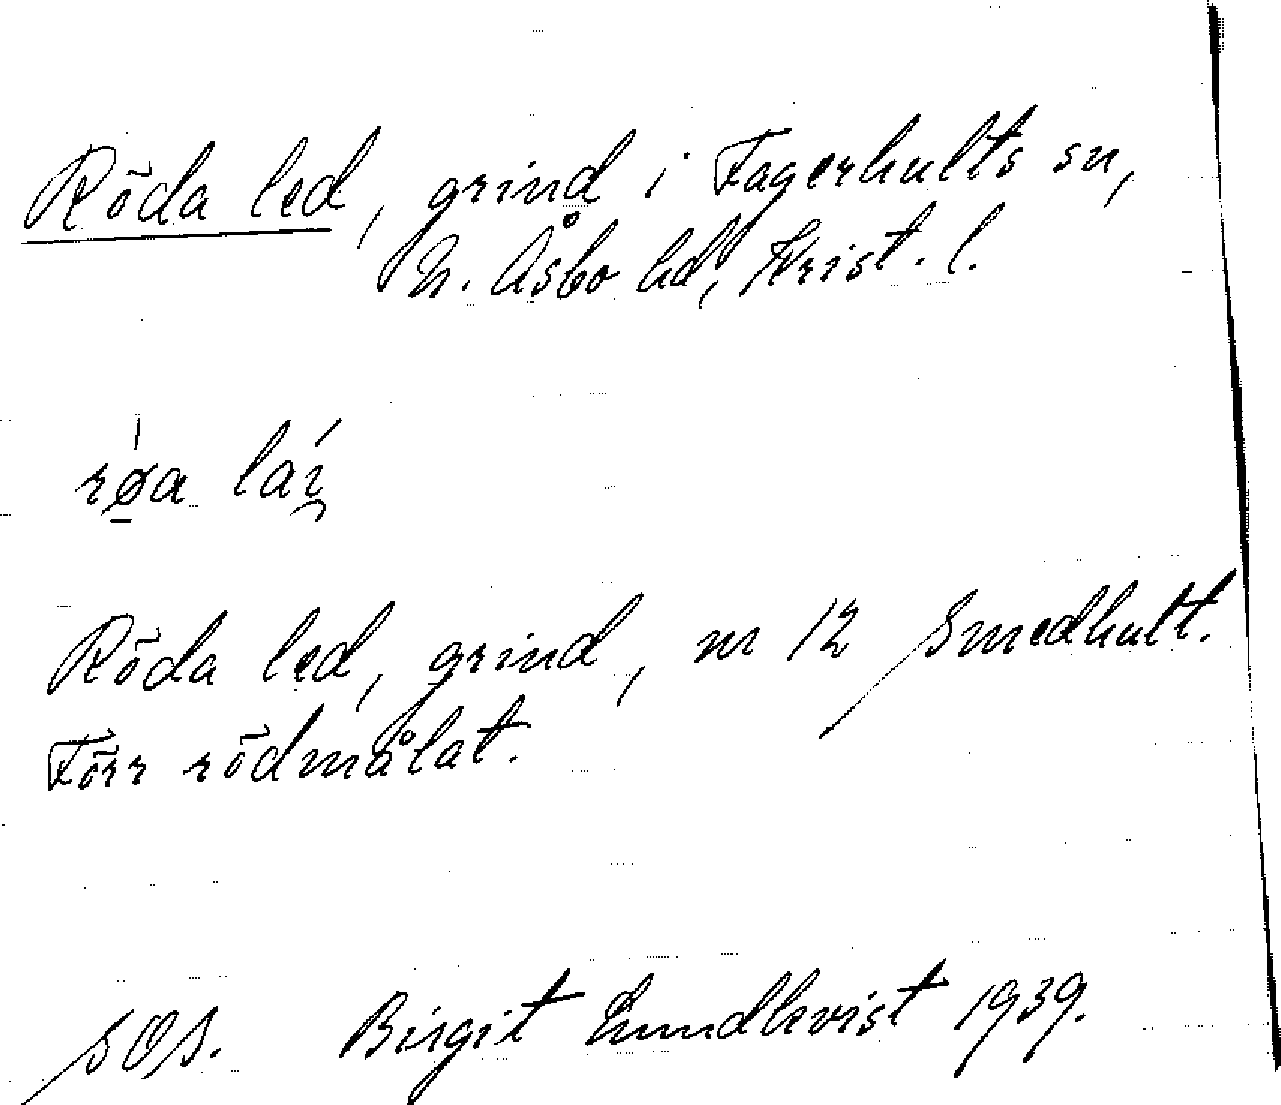 Röda led, grind i Fagerhults sn,
N. Åsbo hd, Krist. l.
Röda led, grind, nr 12 Smedhult.
Förr rödmålat.
SOS. Birgit Lundkvist 1939.